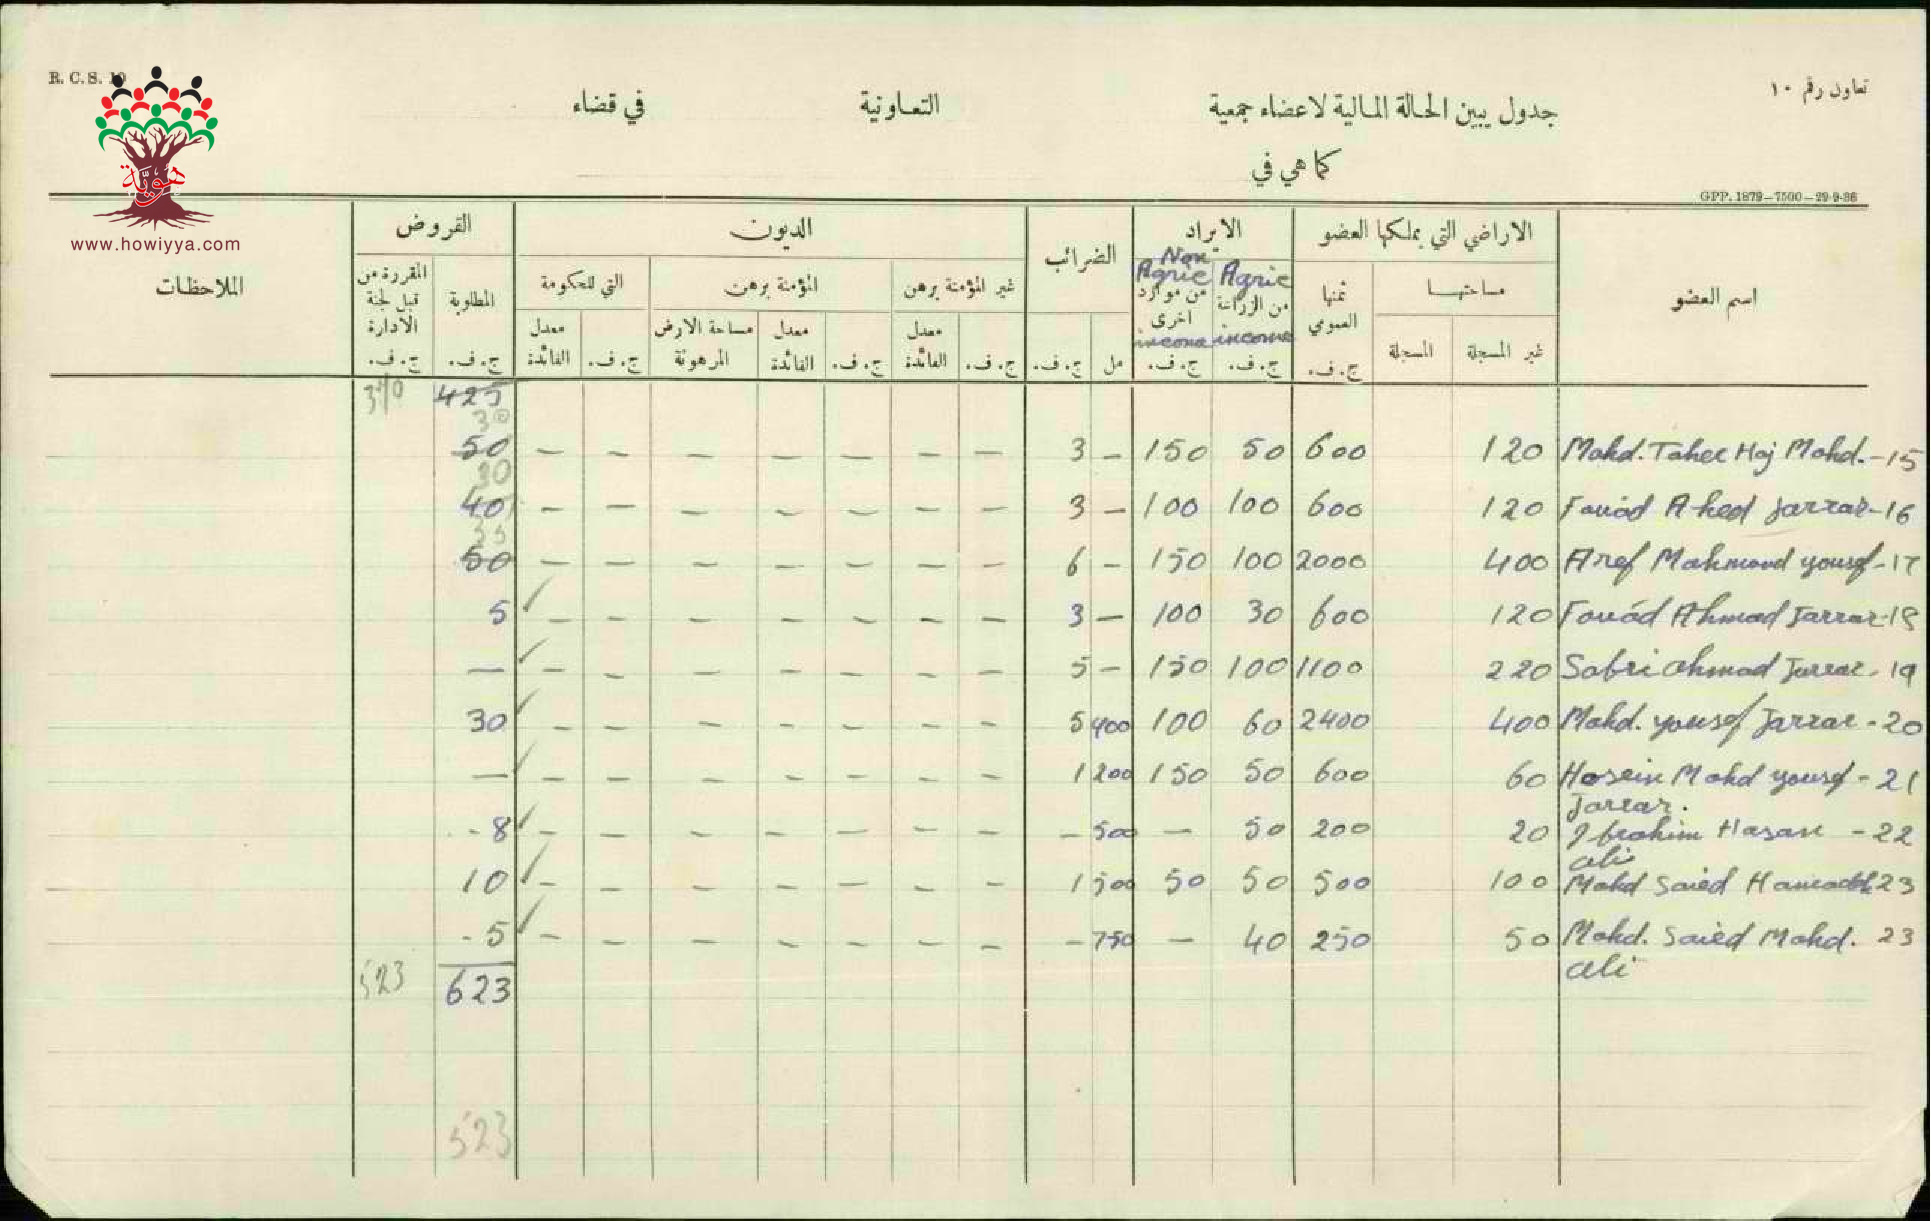 R. C. S. 10
تعاون رقم ١٠
جدول يبين الحالة المالية لاعضاء جمعية التعاونية في قضاء
كما هي في
GPP. 1879—7500—29-9-36
هوية
www.howiyya.com
اسم العضو
الاراضي التي يملكها العضو
مساحتها
غير المسجلة
المسجلة
ثمنها العمومي
ج. ف.
الايراد
Agric من الزراعة income
ج. ف.
Non Agric من موارد اخرى income
ج. ف.
الضرائب
مل
ج. ف.
الديون
غير المؤمنة برهن
ج. ف.
معدل الفائدة
المؤمنة برهن
ج. ف.
معدل الفائدة
مساحة الارض المرهونة
التي للحكومة
ج. ف.
معدل الفائدة
القروض
المطلوبة
ج. ف.
المقررة من قبل لجنة الادارة
ج. ف.
الملاحظات
425
30
50 — — — — — — — 3 — 150 50 600 120 Mohd. Taher Haj Mohd. - 15
30
40 — — — — — — — 3 — 100 100 600 120 Fouád Ahed Jarrar - 16
35
50 — — — — — — — 6 — 150 100 2000 400 Aref Mahmoud yousef - 17
5 ✓ — — — — — — — 3 — 100 30 600 120 Fouád Ahmad Jarrar - 18
— ✓ — — — — — — — 5 — 150 100 1100 220 Sabri Ahmad Jarrar - 19
30 ✓ — — — — — — — 5 400 100 60 2400 400 Mohd. yousef Jarrar - 20
— ✓ — — — — — — — 1 200 150 50 600 60 Hosein Mohd yousef - 21
Jarrar.
- 8 ✓ — — — — — — — — 500 — 50 200 20 Ibrahim Hasan - 22
ali
10 ✓ — — — — — — — 1 500 50 50 500 100 Mohd Saied 23
- 5 ✓ — — — — — — — — 750 — 40 250 50 Mohd. Saied Mohd. 23
ali
523 623
523